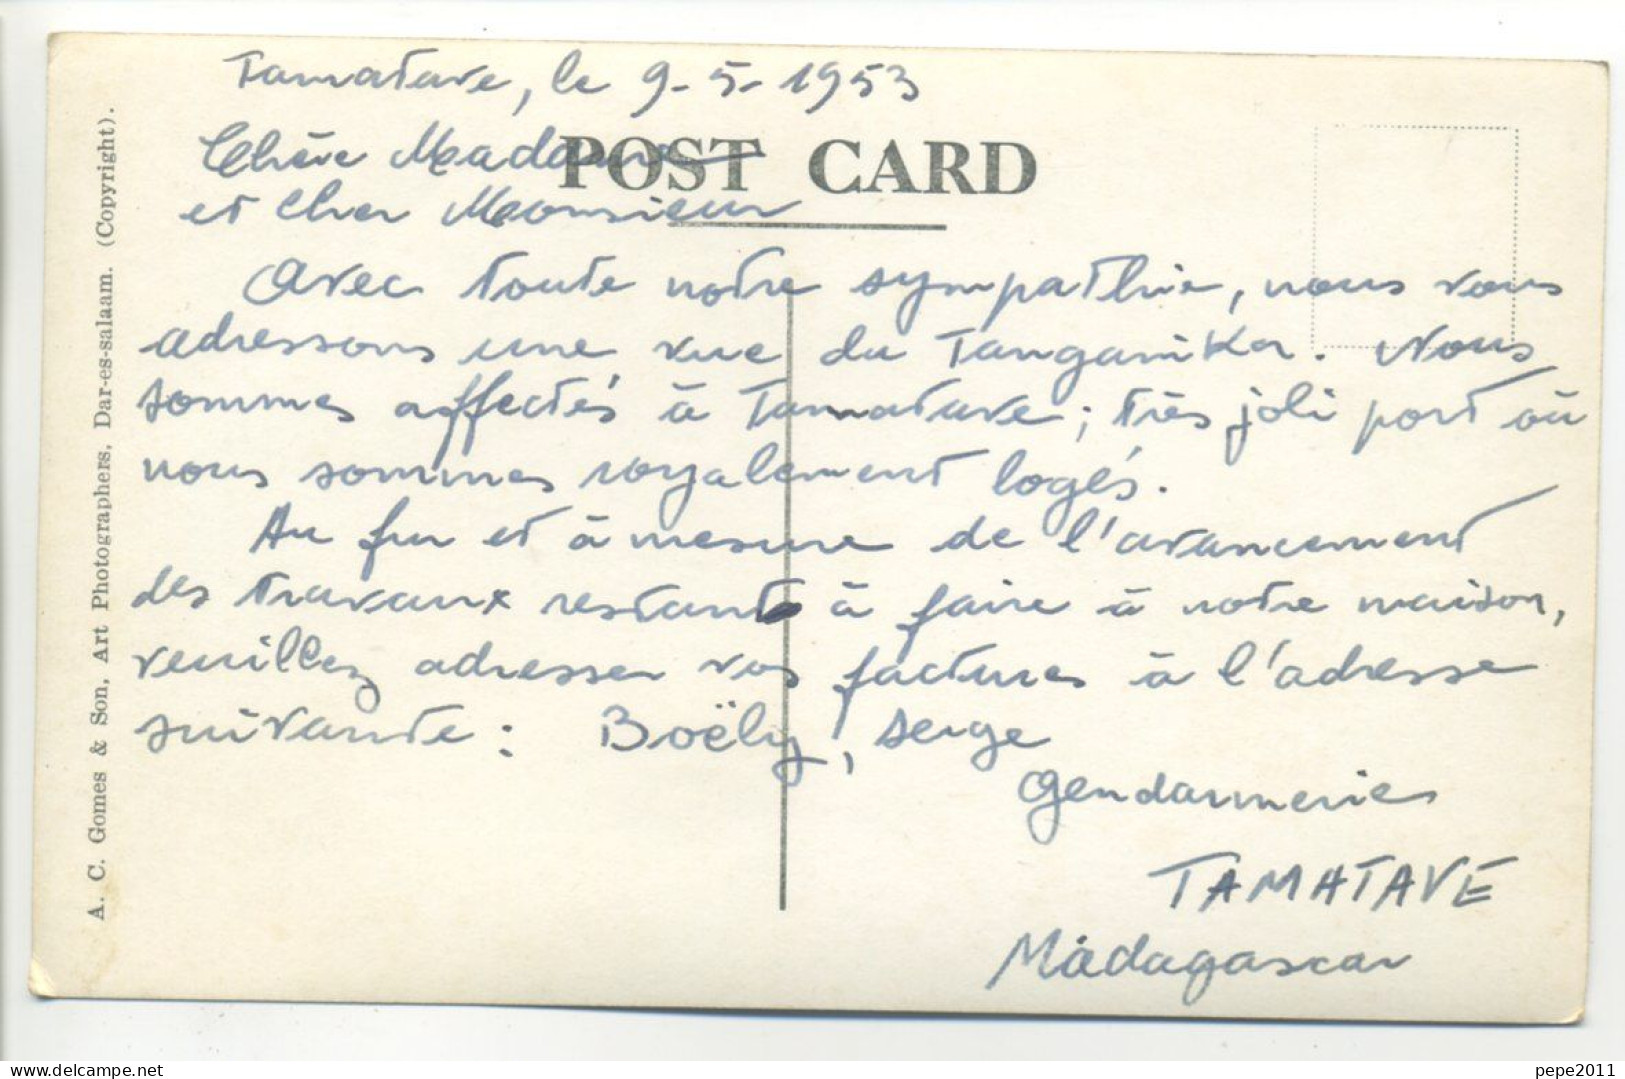 Tamatave, le 9-5-1953
POST CARD
Chère Madame
et Cher Monsieur
Avec toute notre sympathie, nous vous
adressons une vue du Tanganika. Nous
sommes affectés à Tamatave; très joli port où
nous sommes royalement logés.
Au fur et à mesure de l'avancement
des travaux restant à faire à notre maison,
veuillez adresser vos factures à l'adresse
suivante : Boëly, Serge
Gendarmerie
TAMATAVE
Madagascar
A. C. Gomes & Son, Art Photographers, Dar-es-salaam. (Copyright).
www.delcampe.net
pepe2011